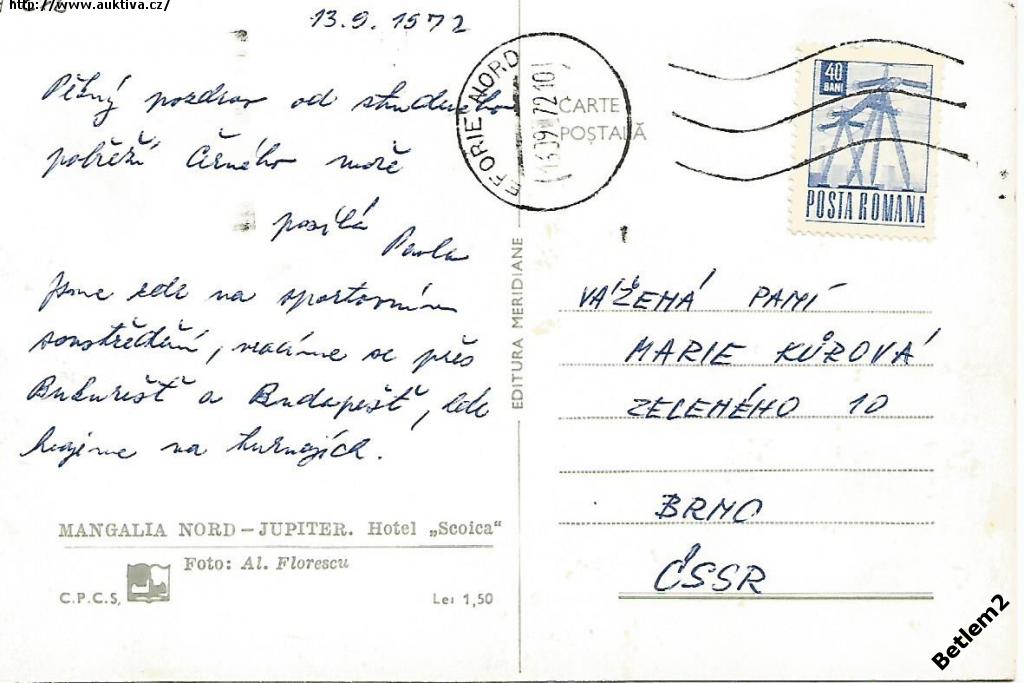 http://www.auktiva.cz/
13.9.1972
Pěkný pozdrav od studeného
pobřeží Černého moře
posílá
Pavla
Jsme zde na sportovním
soustředění, vracíme se přes
Bukurešť a Budapešť, kde
hrajeme na turnajích.
MANGALIA NORD – JUPITER. Hotel „Scoica"
Foto: Al. Florescu
C.P.C.S.
Lei 1,50
EDITURA MERIDIANE
EFORIE NORD
13.09.72.10
CARTE
POȘTALĂ
40
BANI
POSTA ROMANA
VÁŽENÁ PANÍ
MARIE KŮROVÁ
ZELENÉHO 10
BRNO
ČSSR
Betlem2